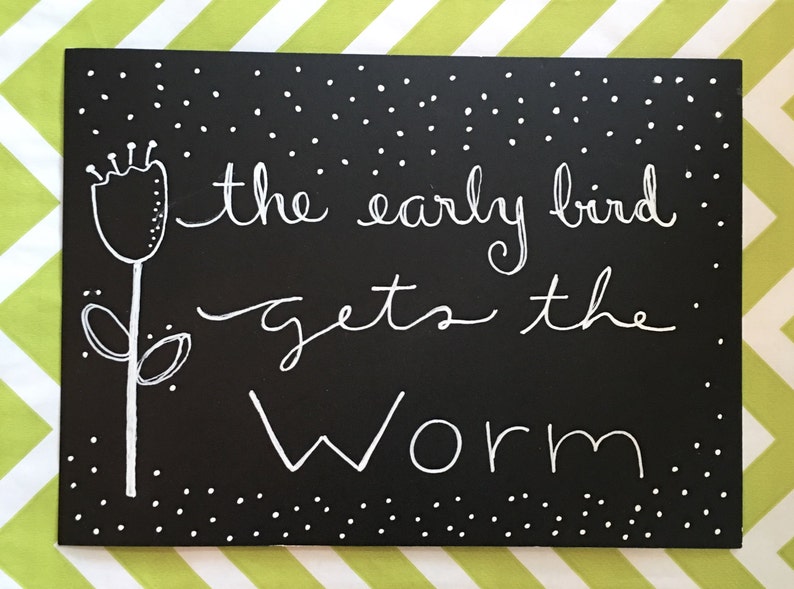 the early bird
gets the
Worm